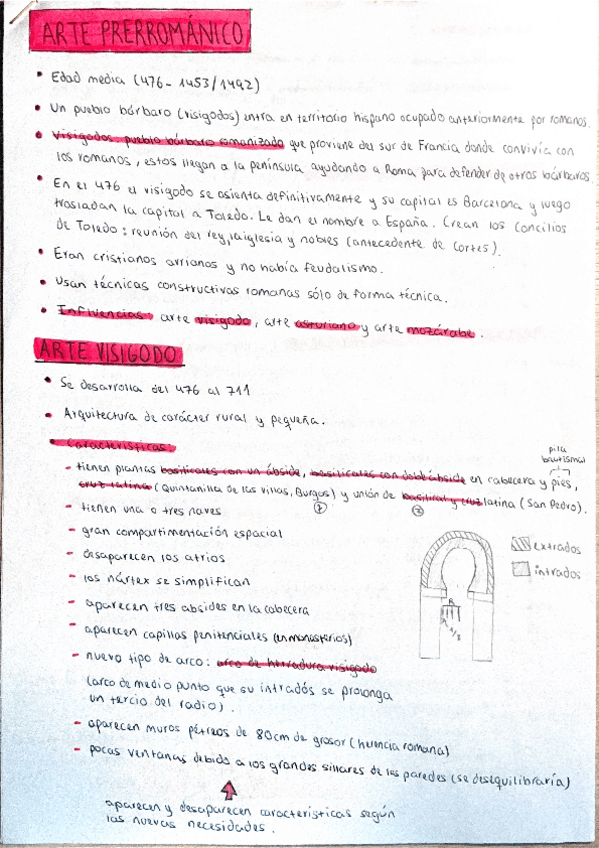 ARTE PRERROMÁNICO
• Edad media (476 - 1453/1492)
• Un pueblo bárbaro (visigodos) entra en territorio hispano ocupado anteriormente por romanos.
• Visigodos: pueblo bárbaro romanizado que proviene del sur de Francia donde convivía con
los romanos, estos llegan a la península ayudando a Roma para defender de otros bárbaros.
• En el 476 el visigodo se asienta definitivamente y su capital es Barcelona y luego
trasladan la capital a Toledo. Le dan el nombre a España. Crean los Concilios
de Toledo: reunión del rey, la iglesia y nobles (antecedente de Cortes).
• Eran cristianos arrianos y no había feudalismo.
• Usan técnicas constructivas romanas sólo de forma técnica.
• Influencias: arte visigodo, arte asturiano y arte mozárabe.
ARTE VISIGODO
• Se desarrolla del 476 al 711
• Arquitectura de carácter rural y pequeña.
• Características
pila
bautismal
- tienen plantas basilicales con un ábside, basilicales con doble ábside en cabecera y pies,
cruz latina (Quintanilla de las Villas, Burgos) y unión de basilical y cruz latina (San Pedro).
- tienen una o tres naves
- gran compartimentación espacial
- desaparecen los atrios
- los nártex se simplifican
- aparecen tres absides en la cabecera
- aparecen capillas penitenciales (en monasterios)
- nuevo tipo de arco: arco de herradura visigodo
(arco de medio punto que su intradós se prolonga
un tercio del radio).
extrados
intrados
R
1/3
- aparecen muros pétreos de 80cm de grosor (herencia romana)
- pocas ventanas debido a los grandes sillares de las paredes (se desequilibraría)
aparecen y desaparecen características según
las nuevas necesidades.